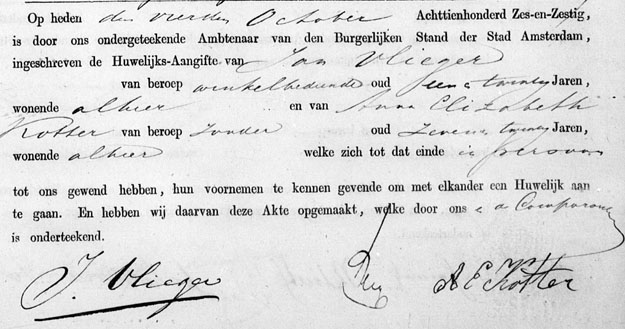 Op heden den vierden October Achttienhonderd Zes-en-Zestig,
is door ons ondergeteekende Ambtenaar van den Burgerlijken Stand der Stad Amsterdam,
ingeschreven de Huwelijks-Aangifte van Jan Vlieger
van beroep winkelbediende oud een & twintig Jaren,
wonende alhier en van Anna Elizabeth
Kotter van beroep zonder oud zeven & twintig Jaren,
wonende alhier welke zich tot dat einde in persoon
tot ons gewend hebben, hun voornemen te kennen gevende om met elkander een Huwelijk aan
te gaan. En hebben wij daarvan deze Akte opgemaakt, welke door ons
is onderteekend.
J. Vlieger A E Kotter